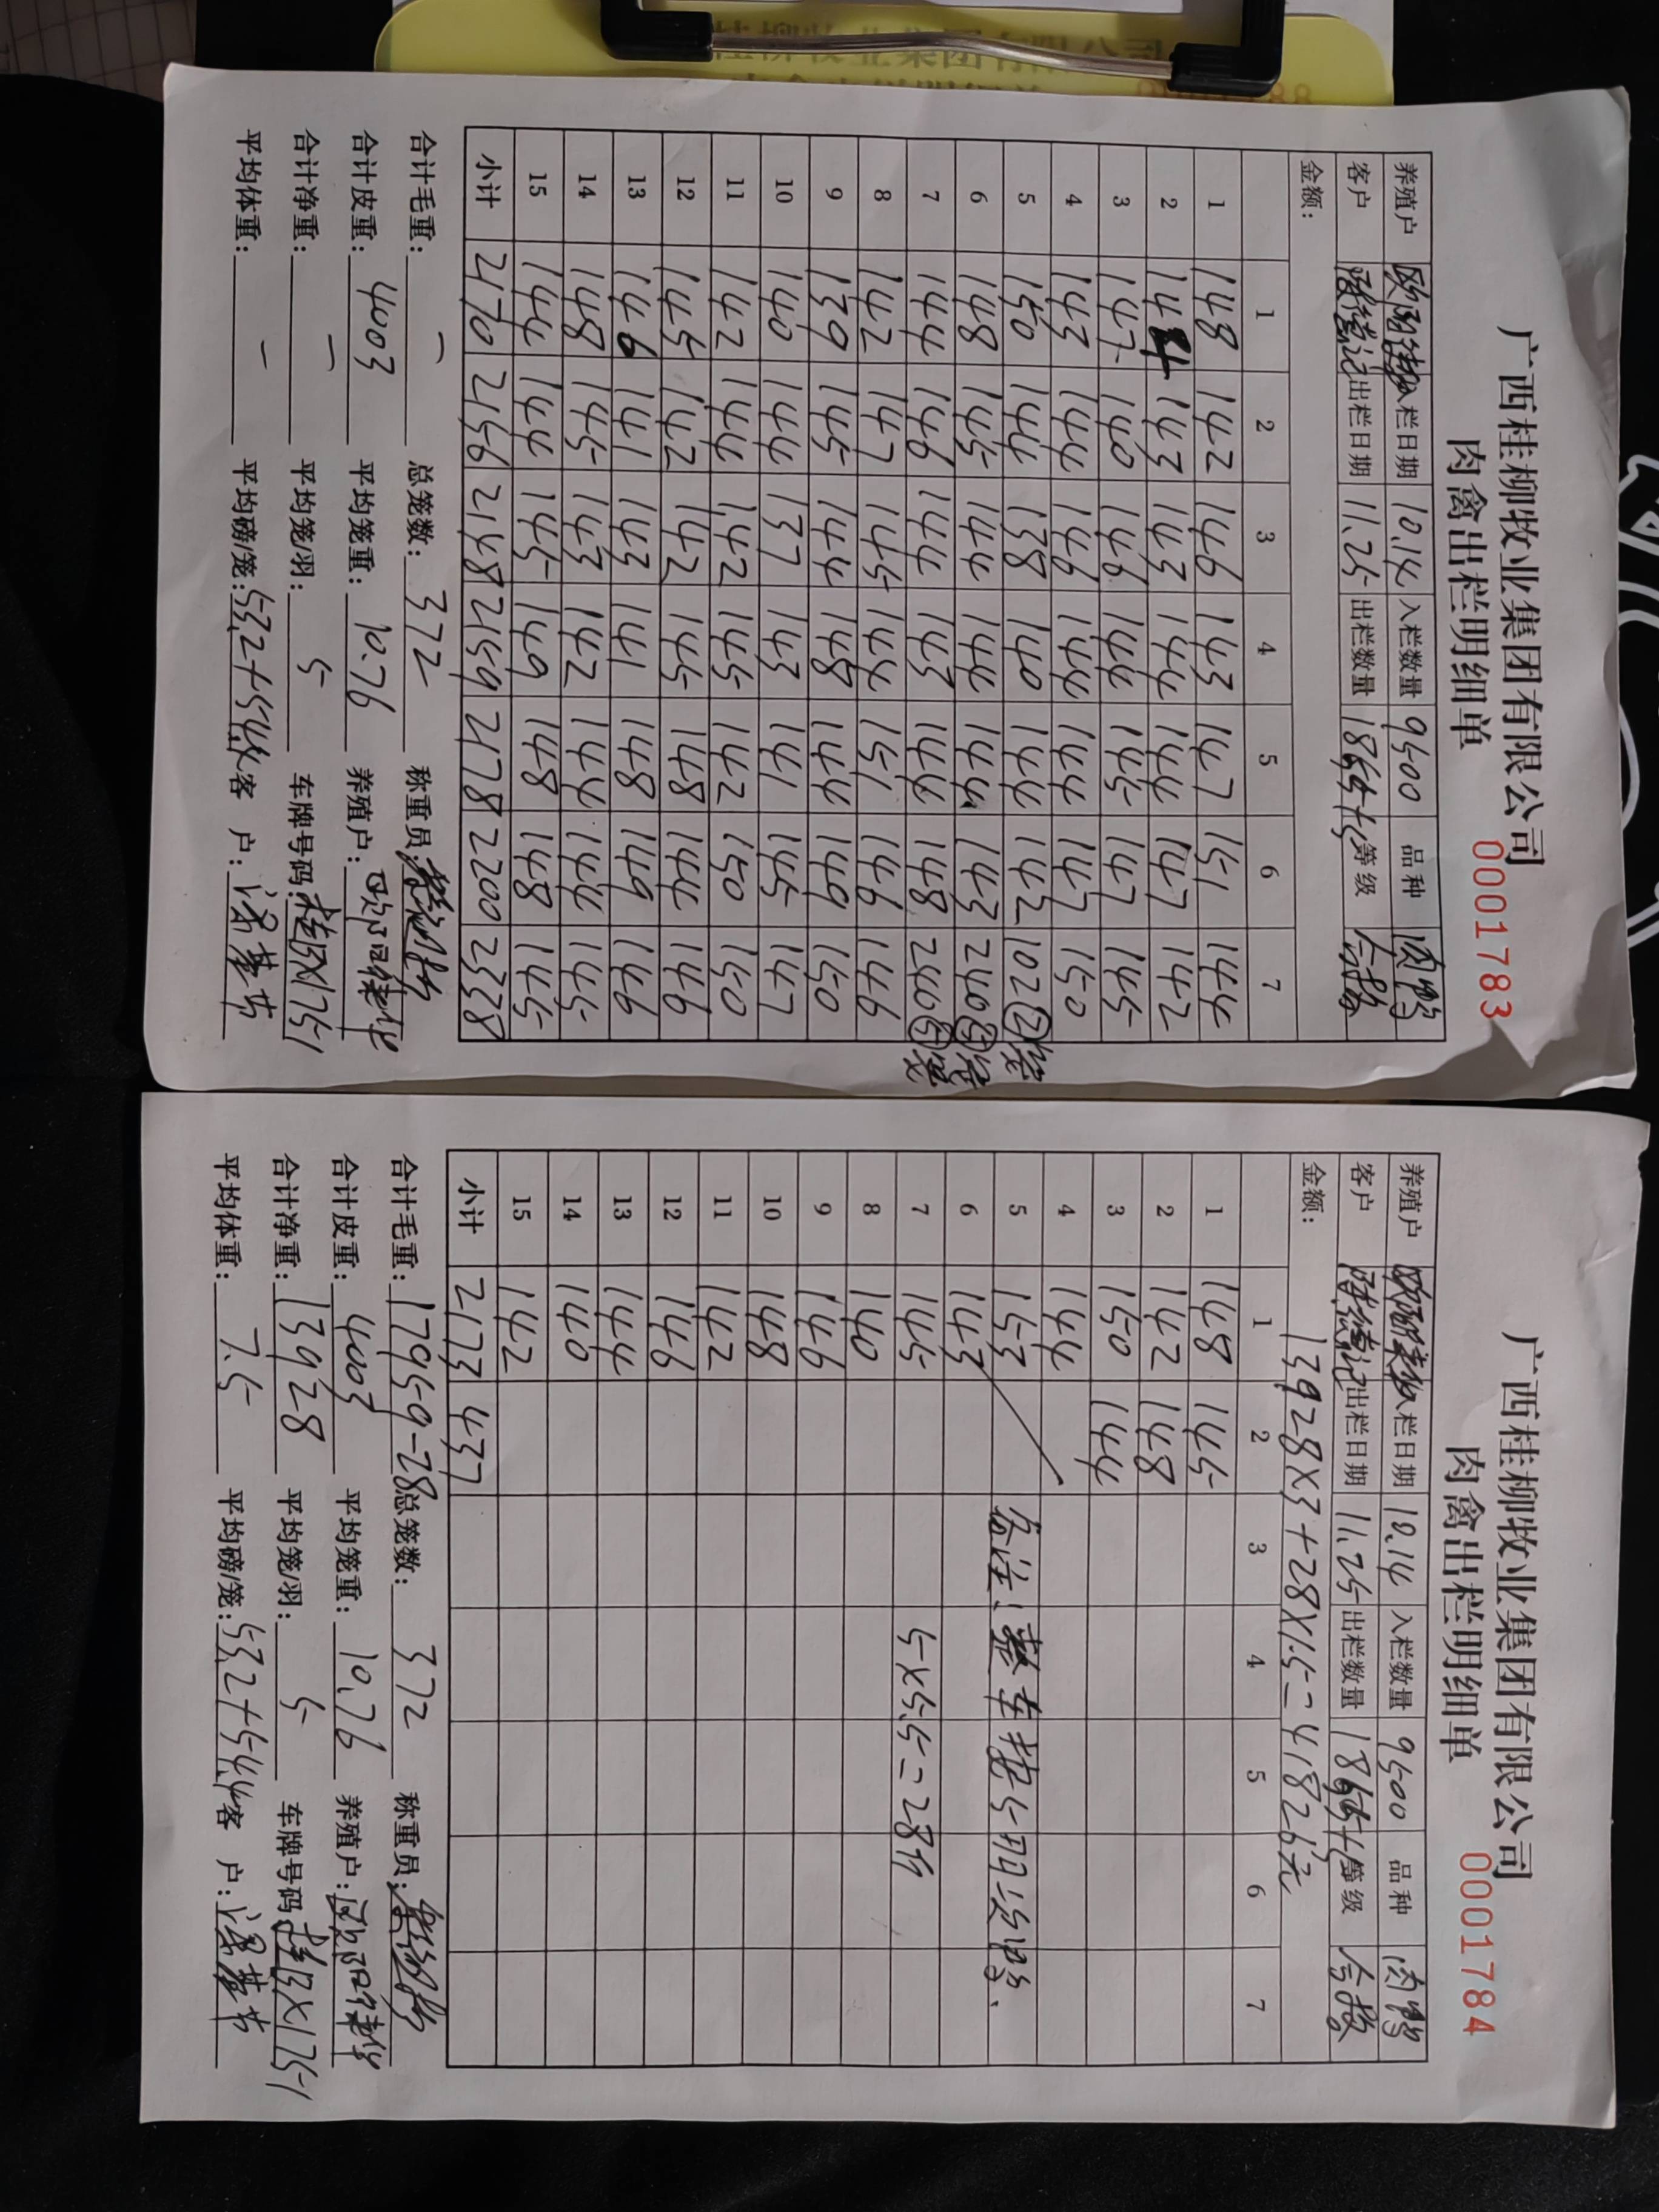 广西桂柳牧业集团有限公司
肉禽出栏明细单 0001783
养殖户 欧阳 入栏日期 10.14 入栏数量 9500 品种 肉鸭
客户 出栏日期 11.25 出栏数量 等级 合格
金额：
1 2 3 4 5 6 7
1 148 142 146 143 147 151 144
2 144 143 143 144 144 147 142
3 147 140 146 144 145 147 145
4 143 144 146 144 144 147 150
5 150 144 138 140 144 142 102 ②笼
6 148 145 144 144 144 143 240 ⑤笼
7 144 146 144 143 144 148 240 ⑤笼
8 142 147 145 144 151 146 146
9 139 145 144 148 144 149 150
10 140 144 137 143 141 145 147
11 142 144 142 145 142 150 150
12 145 142 142 145 148 144 146
13 146 141 143 141 148 149 146
14 148 145 143 142 144 144 145
15 144 144 145 149 148 148 145
小计 2170 2156 2148 2159 2178 2200 2338
合计毛重：一 总笼数：372 称重员：
合计皮重：4003 平均笼重：10.76 养殖户：欧阳
合计净重：一 平均笼/羽：5 车牌号码：桂 X1751
平均体重：一 平均磅/笼：53.2+54.4 客 户：
广西桂柳牧业集团有限公司
肉禽出栏明细单 0001784
养殖户 欧阳 入栏日期 10.14 入栏数量 9500 品种 肉鸭
客户 出栏日期 11.25 出栏数量 等级 合格
金额：13928X3+28X1.5=41826元
1 2 3 4 5 6 7
1 148 145
2 142 148
3 150 144
4 144
5 153 备注：整车按5只次鸭.
6 143
7 145 5X5.5=28斤
8 140
9 146
10 148
11 142
12 146
13 144
14 140
15 142
小计 2173 437
合计毛重：17959-28 总笼数：372 称重员：
合计皮重：4003 平均笼重：10.76 养殖户：欧阳
合计净重：13928 平均笼/羽：5 车牌号码：桂 X1751
平均体重：7.5 平均磅/笼：53.2+54.4 客 户：